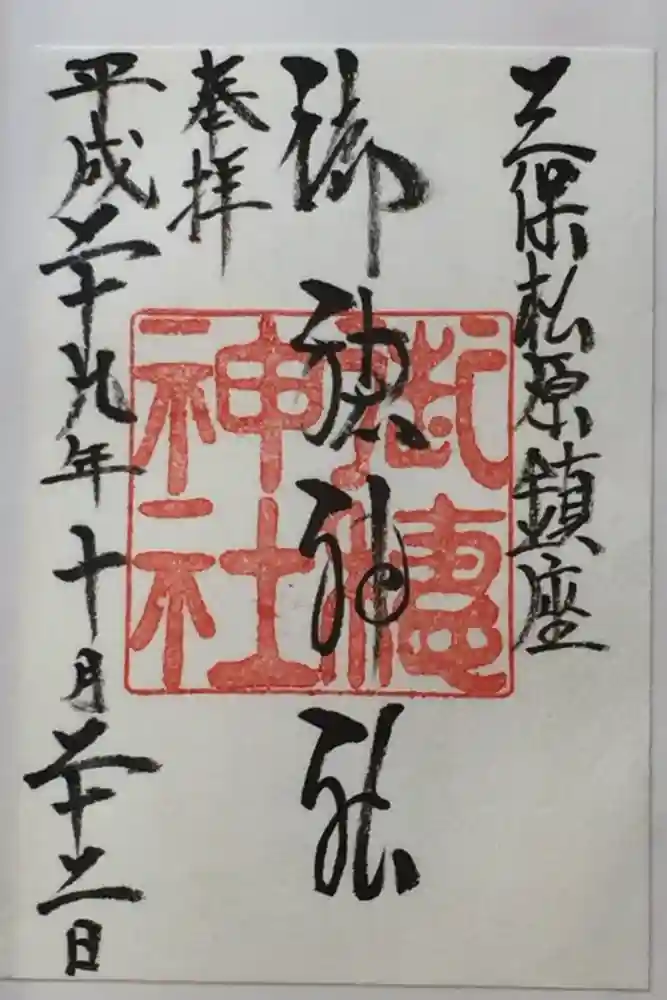 三保松原鎮座
御穂神社
奉拝
平成二十九年十月二十二日
御穂神社